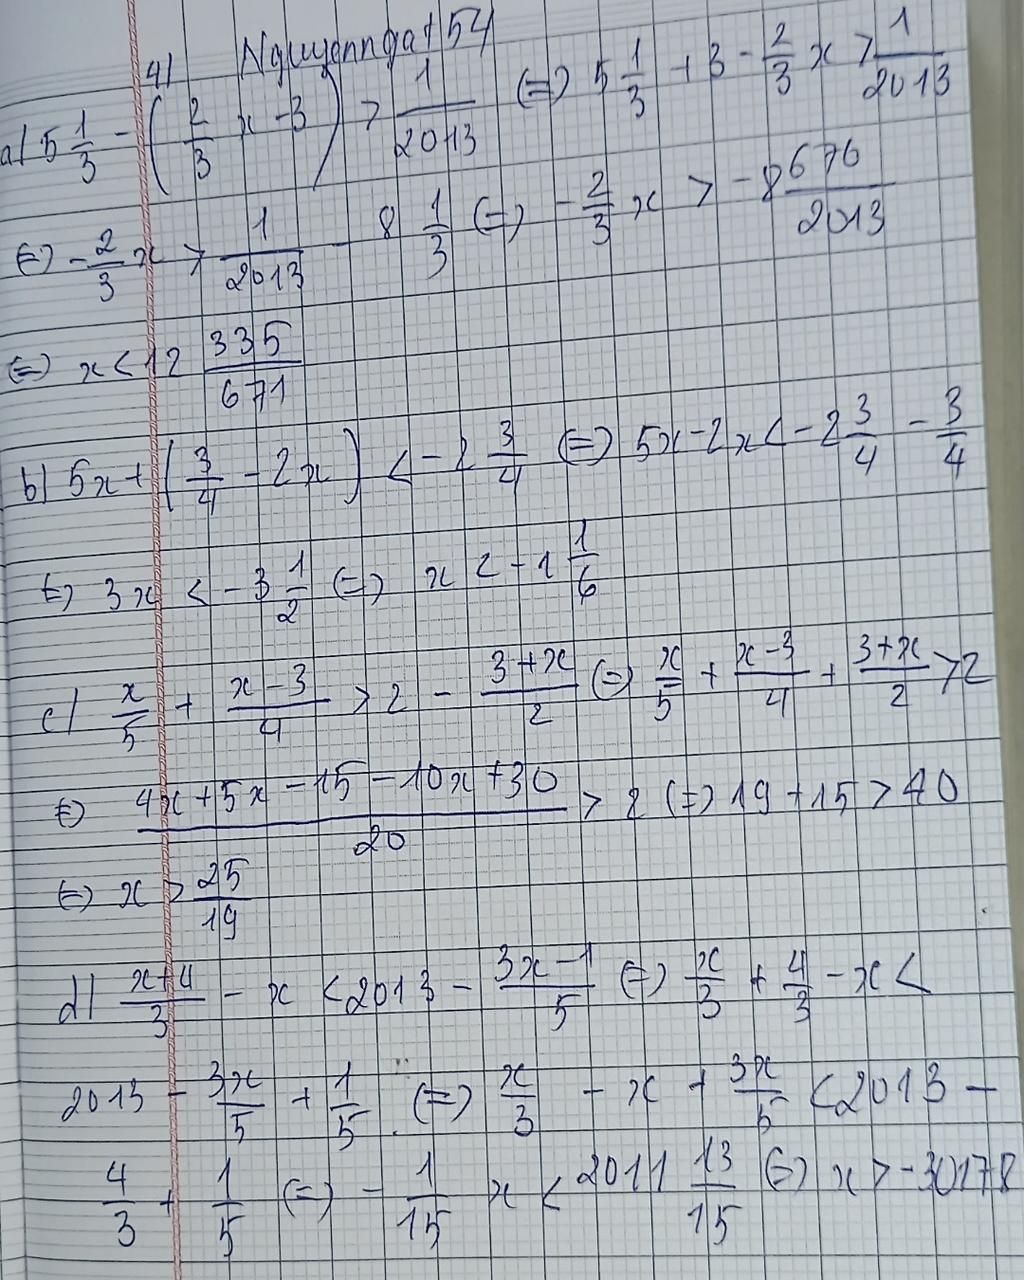 4) Nguyennga+54
a) 5 1/3 - (2/3 x - 3) > 1/2013 (=) 5 1/3 + 3 - 2/3 x > 1/2013
(=) -2/3 x > 1/2013 - 8 1/3 (=) -2/3 x > -8 676/2013
(=) x < 12 335/671
b) 5x + (3/4 - 2x) < -2 3/4 (=) 5x - 2x < -2 3/4 - 3/4
(=) 3x < -3 1/2 (=) x < -1 1/6
c) x/5 + x-3/4 > 2 - 3+x/2 (=) x/5 + x-3/4 + 3+x/2 > 2
(=) 4x+5x-15-10x+30/20 > 2 (=) 19+15 > 40
(=) x > 25/19
d) x+4/3 - x < 2013 - 3x-1/5 (=) x/3 + 4/3 - x <
2013 - 3x/5 + 1/5 (=) x/3 - x + 3x/5 < 2013 -
4/3 + 1/5 (=) -1/15 x < 2011 13/15 (=) x > -30178